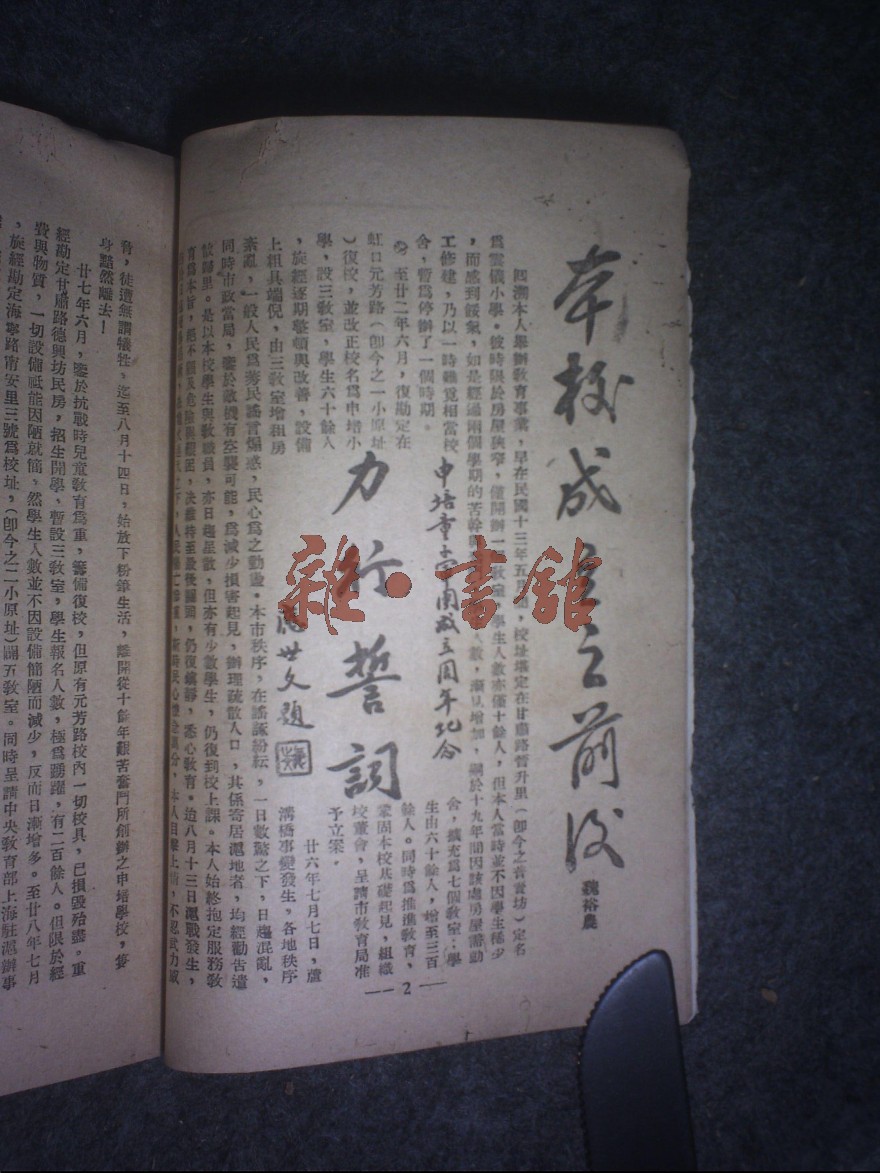 本校成立之前後
魏裕農
回溯本人舉辦教育事業，早在民國十三年五月間，校址堪定在甘肅路晉升里（卽今之普資坊）定名
爲雲儀小學。彼時限於房屋狹窄，僅開辦一教室，學生人數亦僅十餘人，但本人當時並不因學生稀少
，而感到餒氣，如是經過兩個學期的苦幹
人數，漸見增加，嗣於十九年間因該處房屋翻動
工修建，乃以一時難覓相當校
舍，暫爲停辦了一個時期。
至廿二年六月，復勘定在
虹口元芳路（卽今之一小原址
）復校，並改正校名爲申培小
學，設三教室，學生六十餘人
，旋經逐期整頓與改善，設備
上粗具端倪，由三教室增租房
申培重
周年紀念
力行誓詞
世文題
舍，擴充爲七個教室：學
生由六十餘人，增至三百
餘人。同時爲推進教育，
鞏固本校基礎起見，組織
校董會，呈請市教育局准
予立案。
廿六年七月七日，蘆
溝橋事變發生，各地秩序
紊亂，一般人民爲莠民謠言煽惑，民心爲之動盪。本市秩序，在謠諑紛紜，一日數驚之下，日趨混亂，
同時市政當局，鑒於敵機有空襲可能，爲減少損害起見，辦理疏散人口，其係寄居滬地者，均經勸告遣
散歸里。是以本校學生與教職員，亦日趨星散，但亦有少數學生，仍復到校上課。本人始終抱定服務教
育爲本旨，絕不顧及危險與艱困，決維持至最後關頭，仍復鎮靜，悉心教育。迨八月十三日滬戰發生，
本人目擊
，不忍
— 2 —
脅，徒遭無謂犧牲。迄至八月十四日，始放下粉筆生活，離開從十餘年艱苦奮鬥所創辦之申培學校，隻
身黯然離去！
廿七年六月，鑒於抗戰時兒童教育爲重，籌備復校，但原有元芳路校內一切校具，已損毀殆盡。重
經勘定甘肅路德興坊民房，招生開學，暫設三教室，學生報名人數，極爲踴躍，有二百餘人。但限於經
費與物質，一切設備祇能因陋就簡，然學生人數並不因設備簡陋而減少，反而日漸增多。至廿八年七月
，旋經勘定海寧路南安里三號爲校址，（卽今之二小原址）闢五教室。同時呈請中央教育部上海駐滬辦事
雜·書館